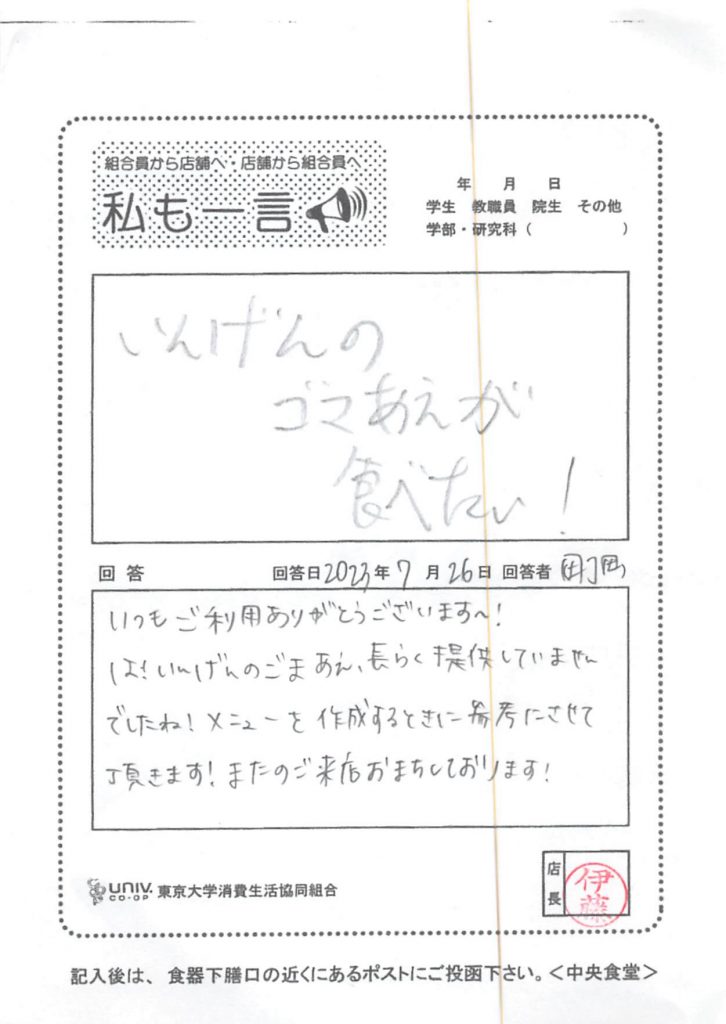 組合員から店舗へ・店舗から組合員へ
私も一言
年 月 日
学生 教職員 院生 その他
学部・研究科( )
いんげんの
ゴマあえが
食べたい!
回答 回答日2023年7月26日 回答者 町岡
いつもご利用ありがとうございます〜!
は!いんげんのごまあえ、長らく提供していません
でしたね!メニューを作成するときに参考にさせて
頂きます!またのご来店おまちしております!
UNIV. CO-OP 東京大学消費生活協同組合
店長
伊藤
記入後は、食器下膳口の近くにあるポストにご投函下さい。<中央食堂>